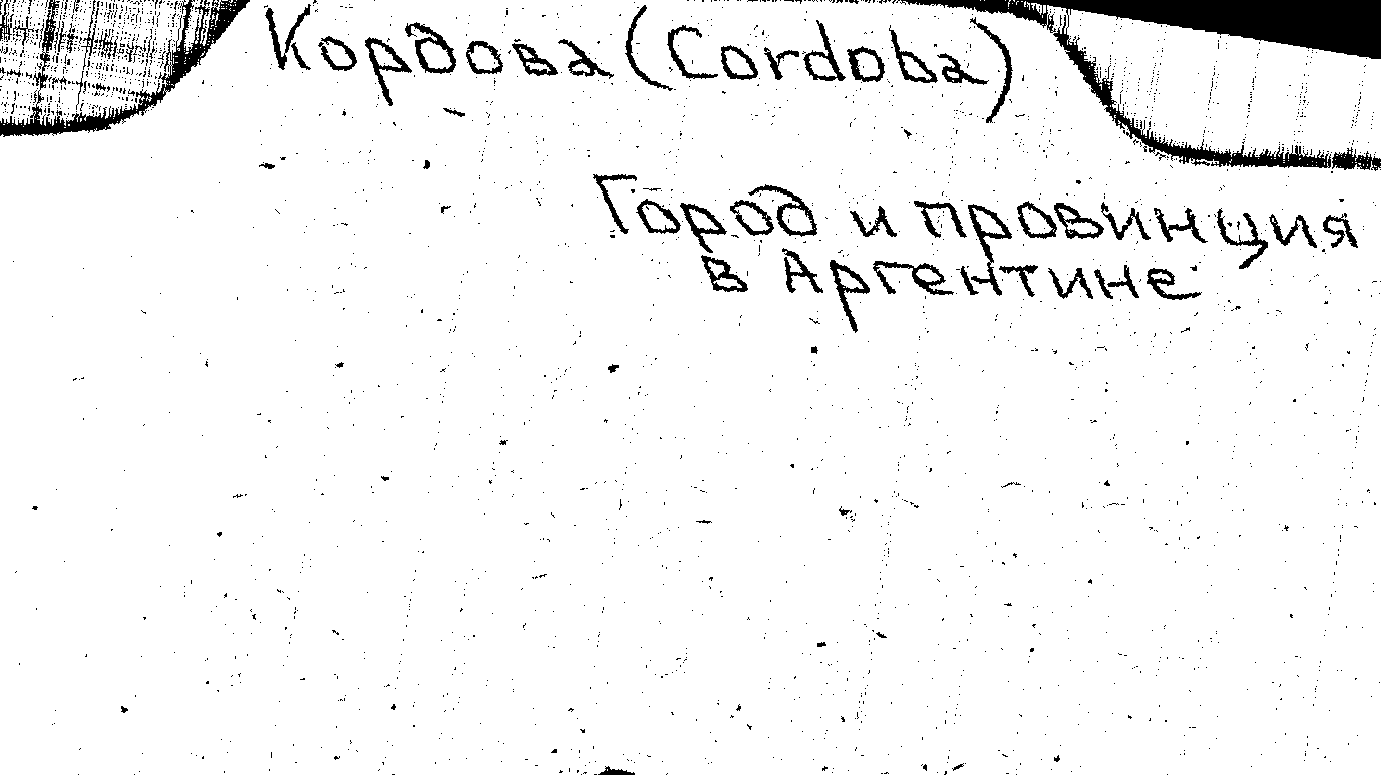 Кордова (Cordoba)
Город и провинция
в Аргентине